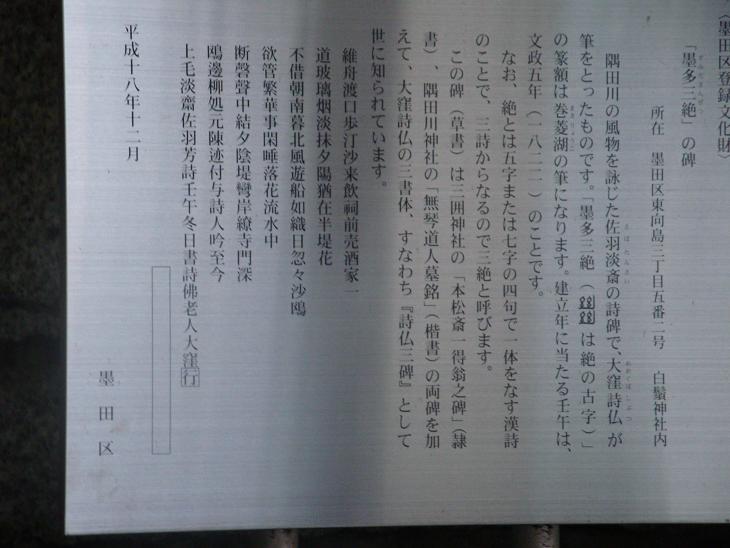 (墨田区登録文化財)
「墨多三絶」の碑
すみださんぜつ
所在 墨田区東向島三丁目五番二号 白鬚神社内
隅田川の風物を詠じた佐羽淡斎の詩碑で、大窪詩仏が
さばたんさい
おおくぼしぶつ
筆をとったものです。「墨多三絶(𢇍𢇍は絶の古字)」
の篆額は巻菱湖の筆になります。建立年に当たる壬午は、
まきりょうこ
文政五年(一八二二)のことです。
なお、絶とは五字または七字の四句で一体をなす漢詩
のことで、三詩からなるので三絶と呼びます。
この碑(草書)は三囲神社の「本松斎一得翁之碑」(隷
書)、隅田川神社の「無琴道人墓銘」(楷書)の両碑を加
えて、大窪詩仏の三書体、すなわち『詩仏三碑』として
世に知られています。
維舟渡口歩汀沙来飲祠前売酒家一
道玻璃烟淡抹夕陽猶在半堤花
不借朝南暮北風遊船如織日忽々沙鴎
欲管繁華事閑唾落花流水中
断磬聲中結夕陰堤彎岸繚寺門深
鴎邊柳処元陳迹付与詩人吟至今
上毛淡齋佐羽芳詩壬午冬日書詩佛老人大窪行
平成十八年十二月
墨田区